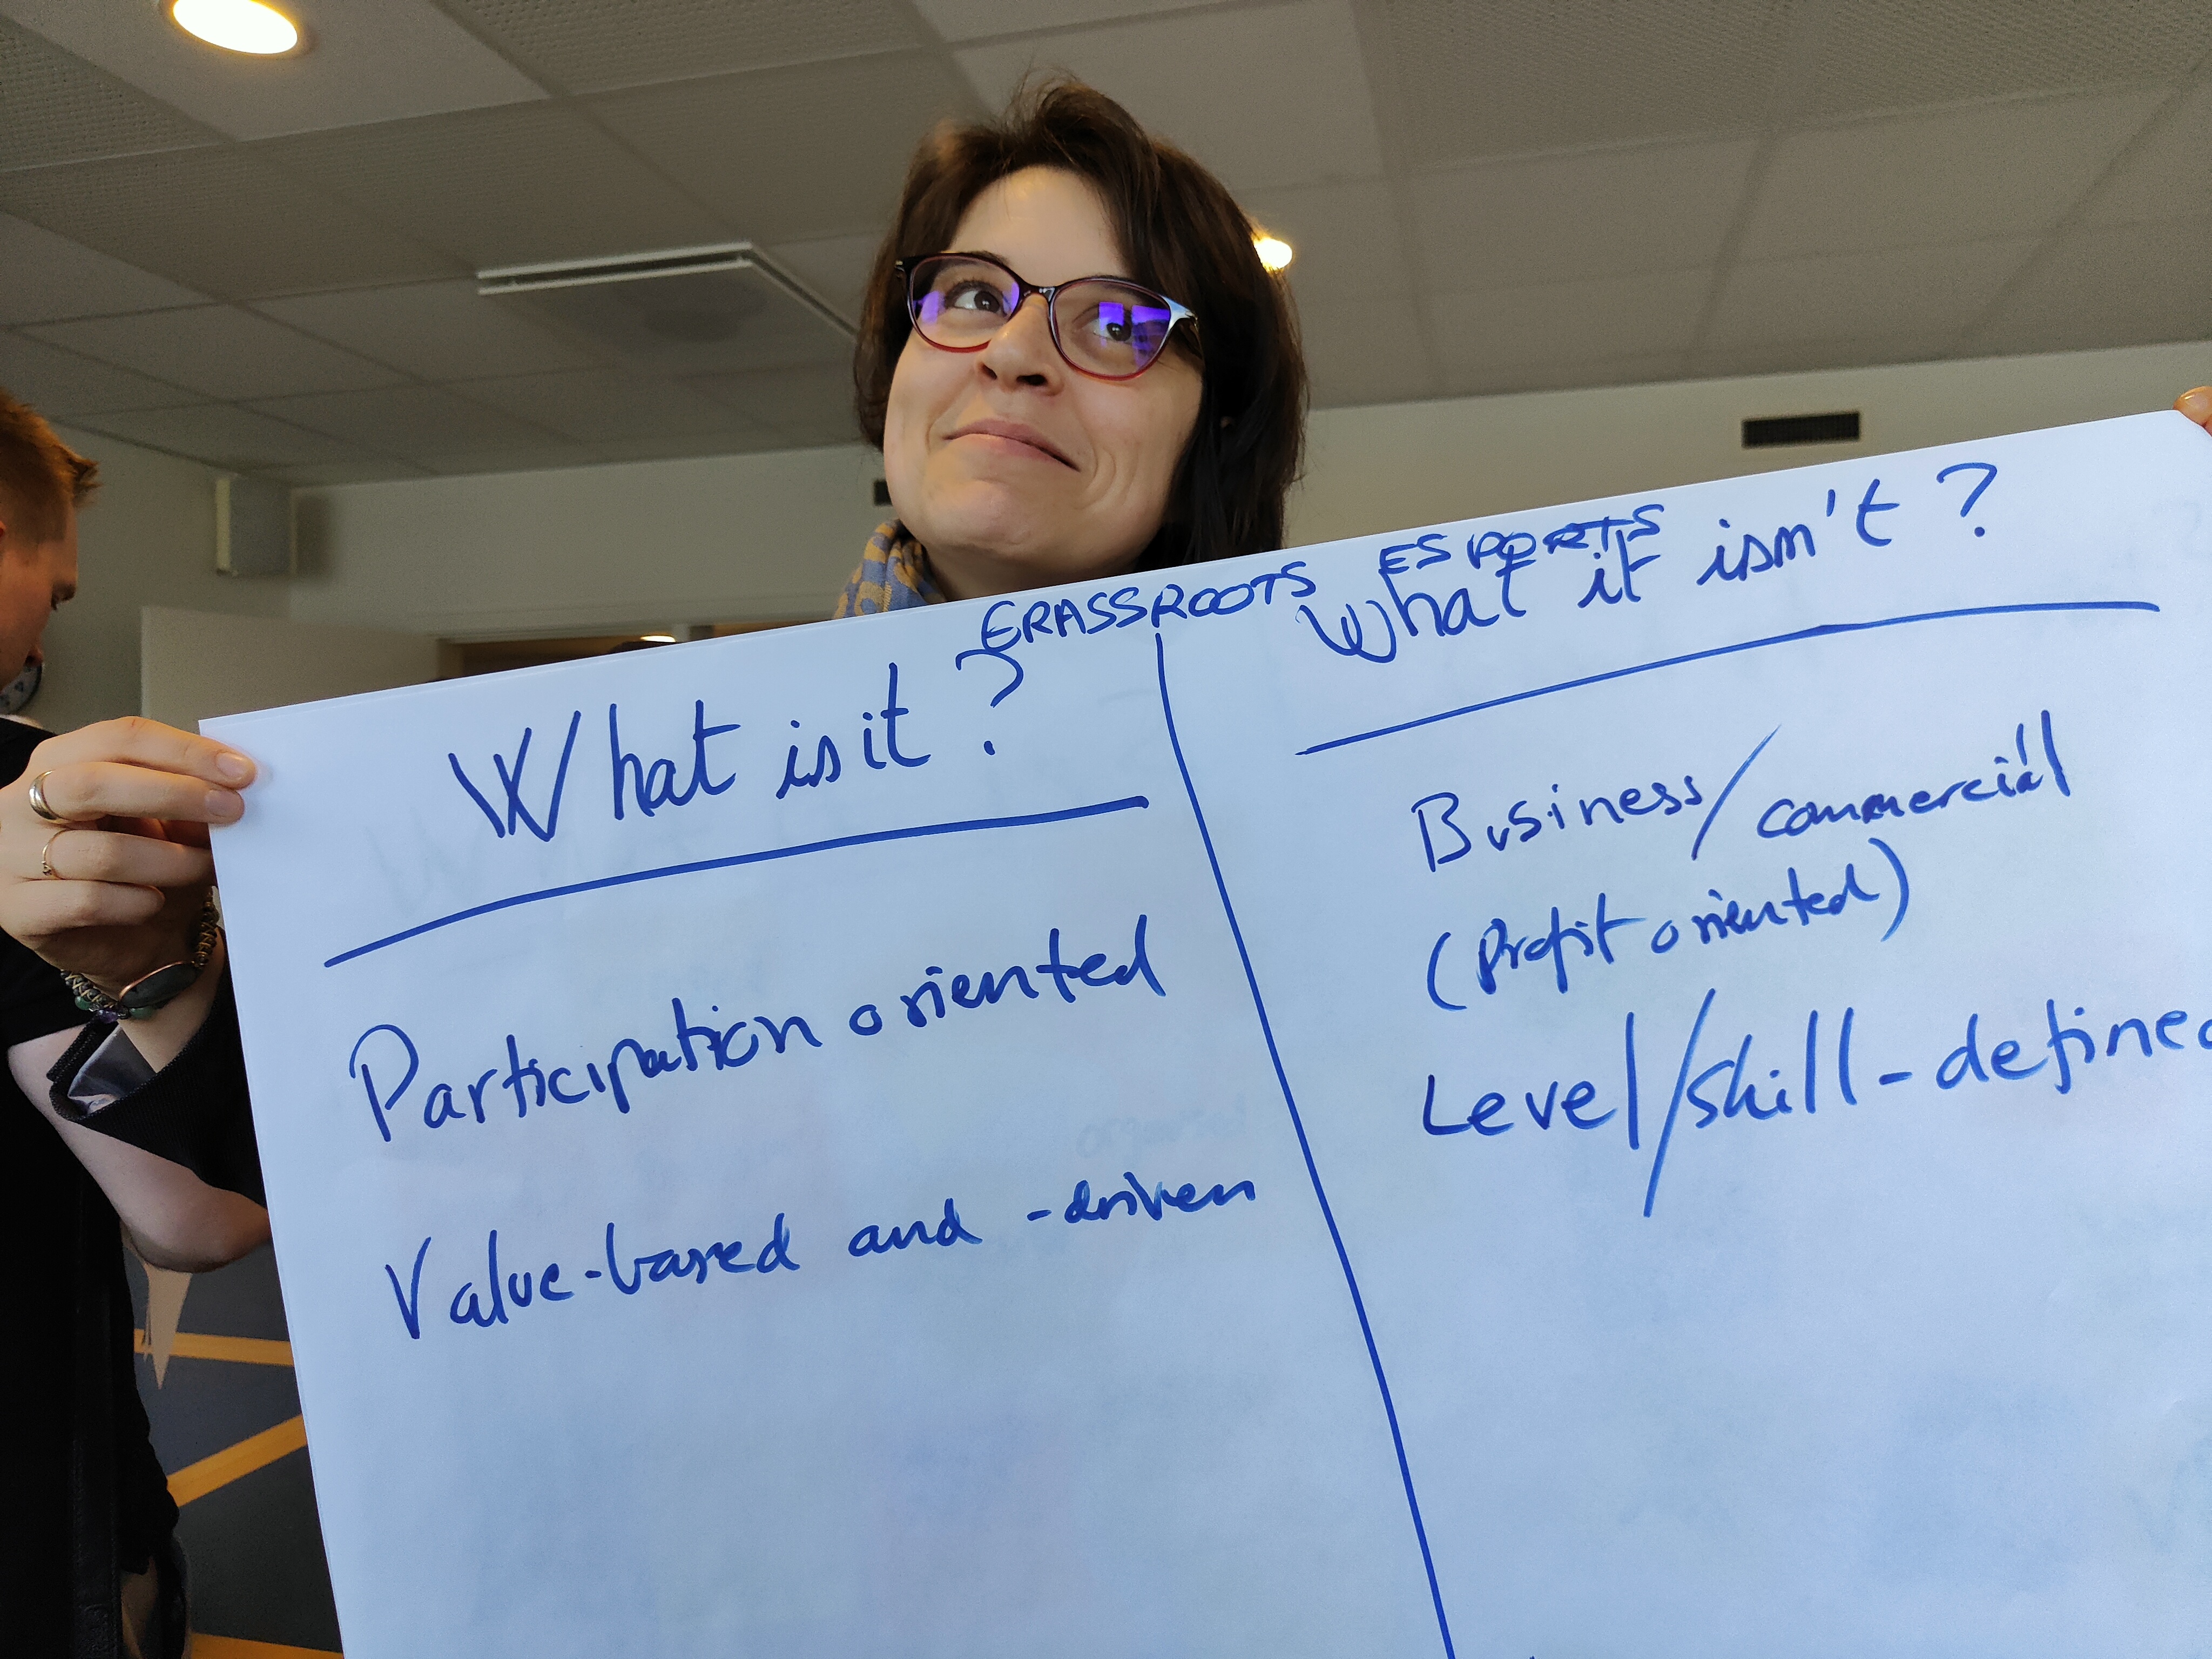 GRASSROOTS ESPORTS
What is it?
Participation oriented
Value-based and -driven
What it isn't?
Business/commercial
(Profit oriented)
Level/skill-defined